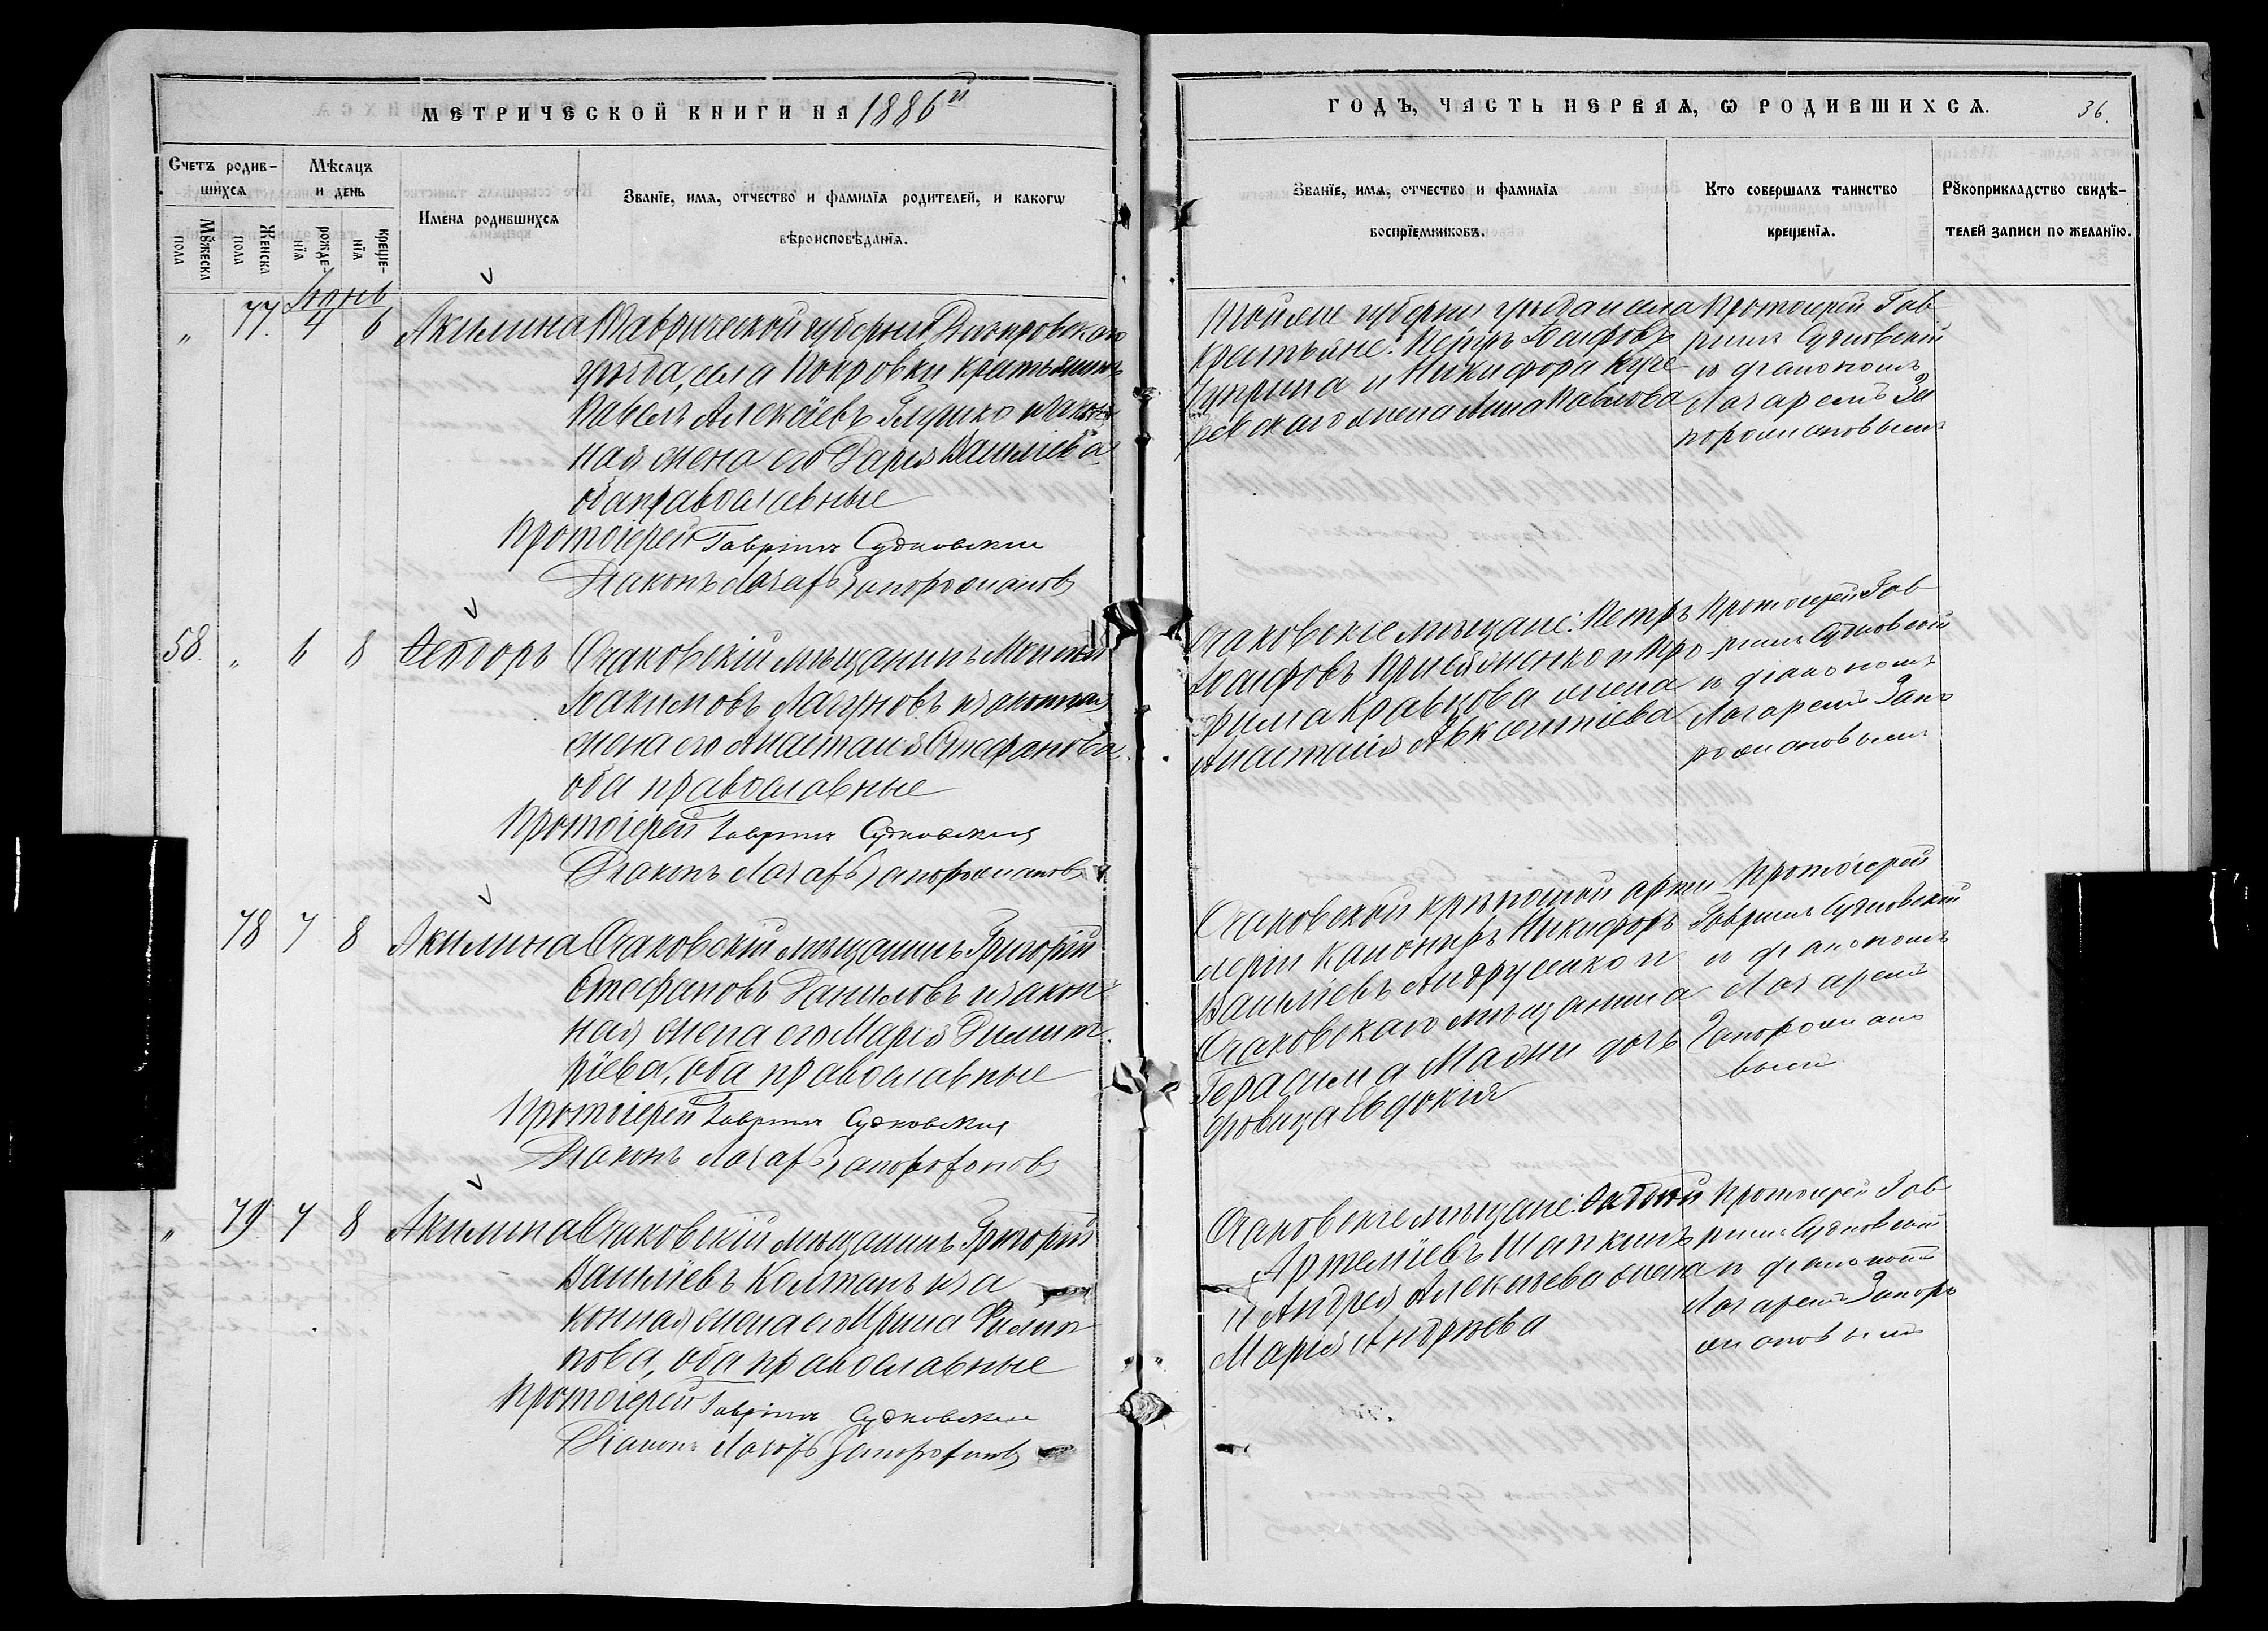 МЕТРИЧЕСКОЙ КНИГИ НА 1886й
ГОДЪ, ЧАСТЬ ПЕРВАЯ, Ѡ РОДИВШИХСѦ.
36.
Счетъ родив-
шихсѧ
Мѣсяцъ
и день
Имена родившихсѧ
Званїе, имѧ, отчество и фамилїѧ родителей, и какогѡ
вѣроисповѣданїѧ.
Мꙋжеска
пола
Женска
пола
рожде-
нїѧ
креще-
нїѧ
Званїе, имѧ, отчество и фамилїѧ
воспрїемниковъ.
Кто совершалъ таинство
крещенїѧ.
Рꙋкоприкладство свидѣ-
телей записи по желанїю.
Іюнь
„ 77. 4 6 Акилина
Таврической губерніи Днѣпровскаго
уѣзда, села Покровки крестьянинъ
Павелъ Алексѣевъ и закон
ная жена его Дарія Василіева
оба православные
Протоіерей Гавріилъ Судковскій
Діаконъ Лазарь Запорожановъ
губерніи уѣзда села
крестьяне: Петръ Іосифовъ
Чуприна и Никифора Куче
ревскаго жена Анна Павлова
Протоіерей Гав
ріилъ Судковскій
и діакономъ
Лазаремъ За
порожановымъ
58. „ 6 8 Ѳеодоръ
Очаковскій мѣщанинъ Моисей
Іоакимовъ и законная
жена его Анастасія Стефанова
оба православные
Протоіерей Гавріилъ Судковскій
Діаконъ Лазарь Запорожановъ
Очаковскіе мѣщане: Петръ
Іосифовъ и Тро
фима Кравцова жена
Анастасія Авксентіева
Протоіерей Гав
ріилъ Судковскій
и діакономъ
Лазаремъ Запо
рожановымъ
78 7 8 Акилина
Очаковскій мѣщанинъ Григорій
Стефановъ Даниловъ и закон
ная жена его Марія Димит
ріева, оба православные
Протоіерей Гавріилъ Судковскій
Діаконъ Лазарь Запорожановъ
Очаковской крѣпостной артил
леріи канониръ Никифоръ
Василіевъ Андрусенко и
Очаковскаго мѣщанина
Герасима дочь
дѣвица Евдокія
Протоіерей
Гавріилъ Судковскій
и діакономъ
Лазаремъ
Запорожано
вымъ
„ 79. 7 8 Акилина
Очаковскій мѣщанинъ Григорій
Василіевъ Колтанъ и за
конная жена его Ирина Филип
пова, оба православные
Протоіерей Гавріилъ Судковскій
Діаконъ Лазарь Запорожановъ
Очаковскіе мѣщане:
Артеміевъ Шапкинъ
и Андрея Алексѣева жена
Марія Андреева
Протоіерей Гав
ріилъ Судковскій
и діакономъ
Лазаремъ Запоро
жановымъ